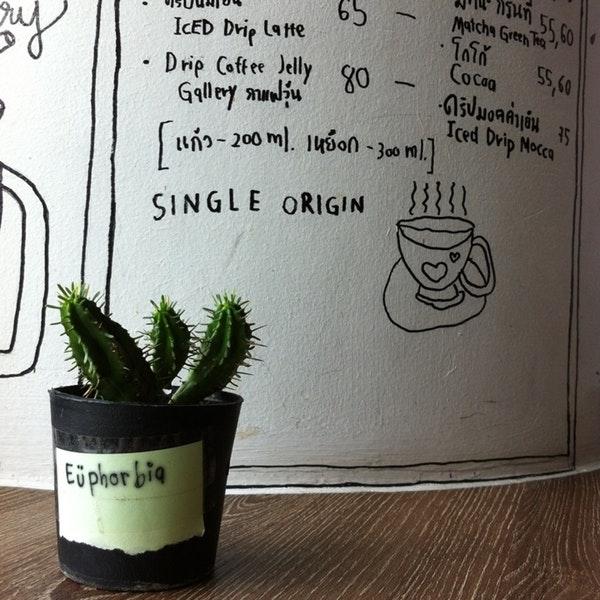 ry
ICED Drip Latte 65 —
· Drip Coffee Jelly 80 —
Gallery กาแฟวุ้น
[แก้ว - 200 ml. เหยือก - 300 ml.]
SINGLE ORIGIN
55,60
Matcha Green Tea
· โกโก้ 55,60
Cocoa
· ดริปมอคค่าเย็น 75
Iced Drip Mocca
Eüphorbia